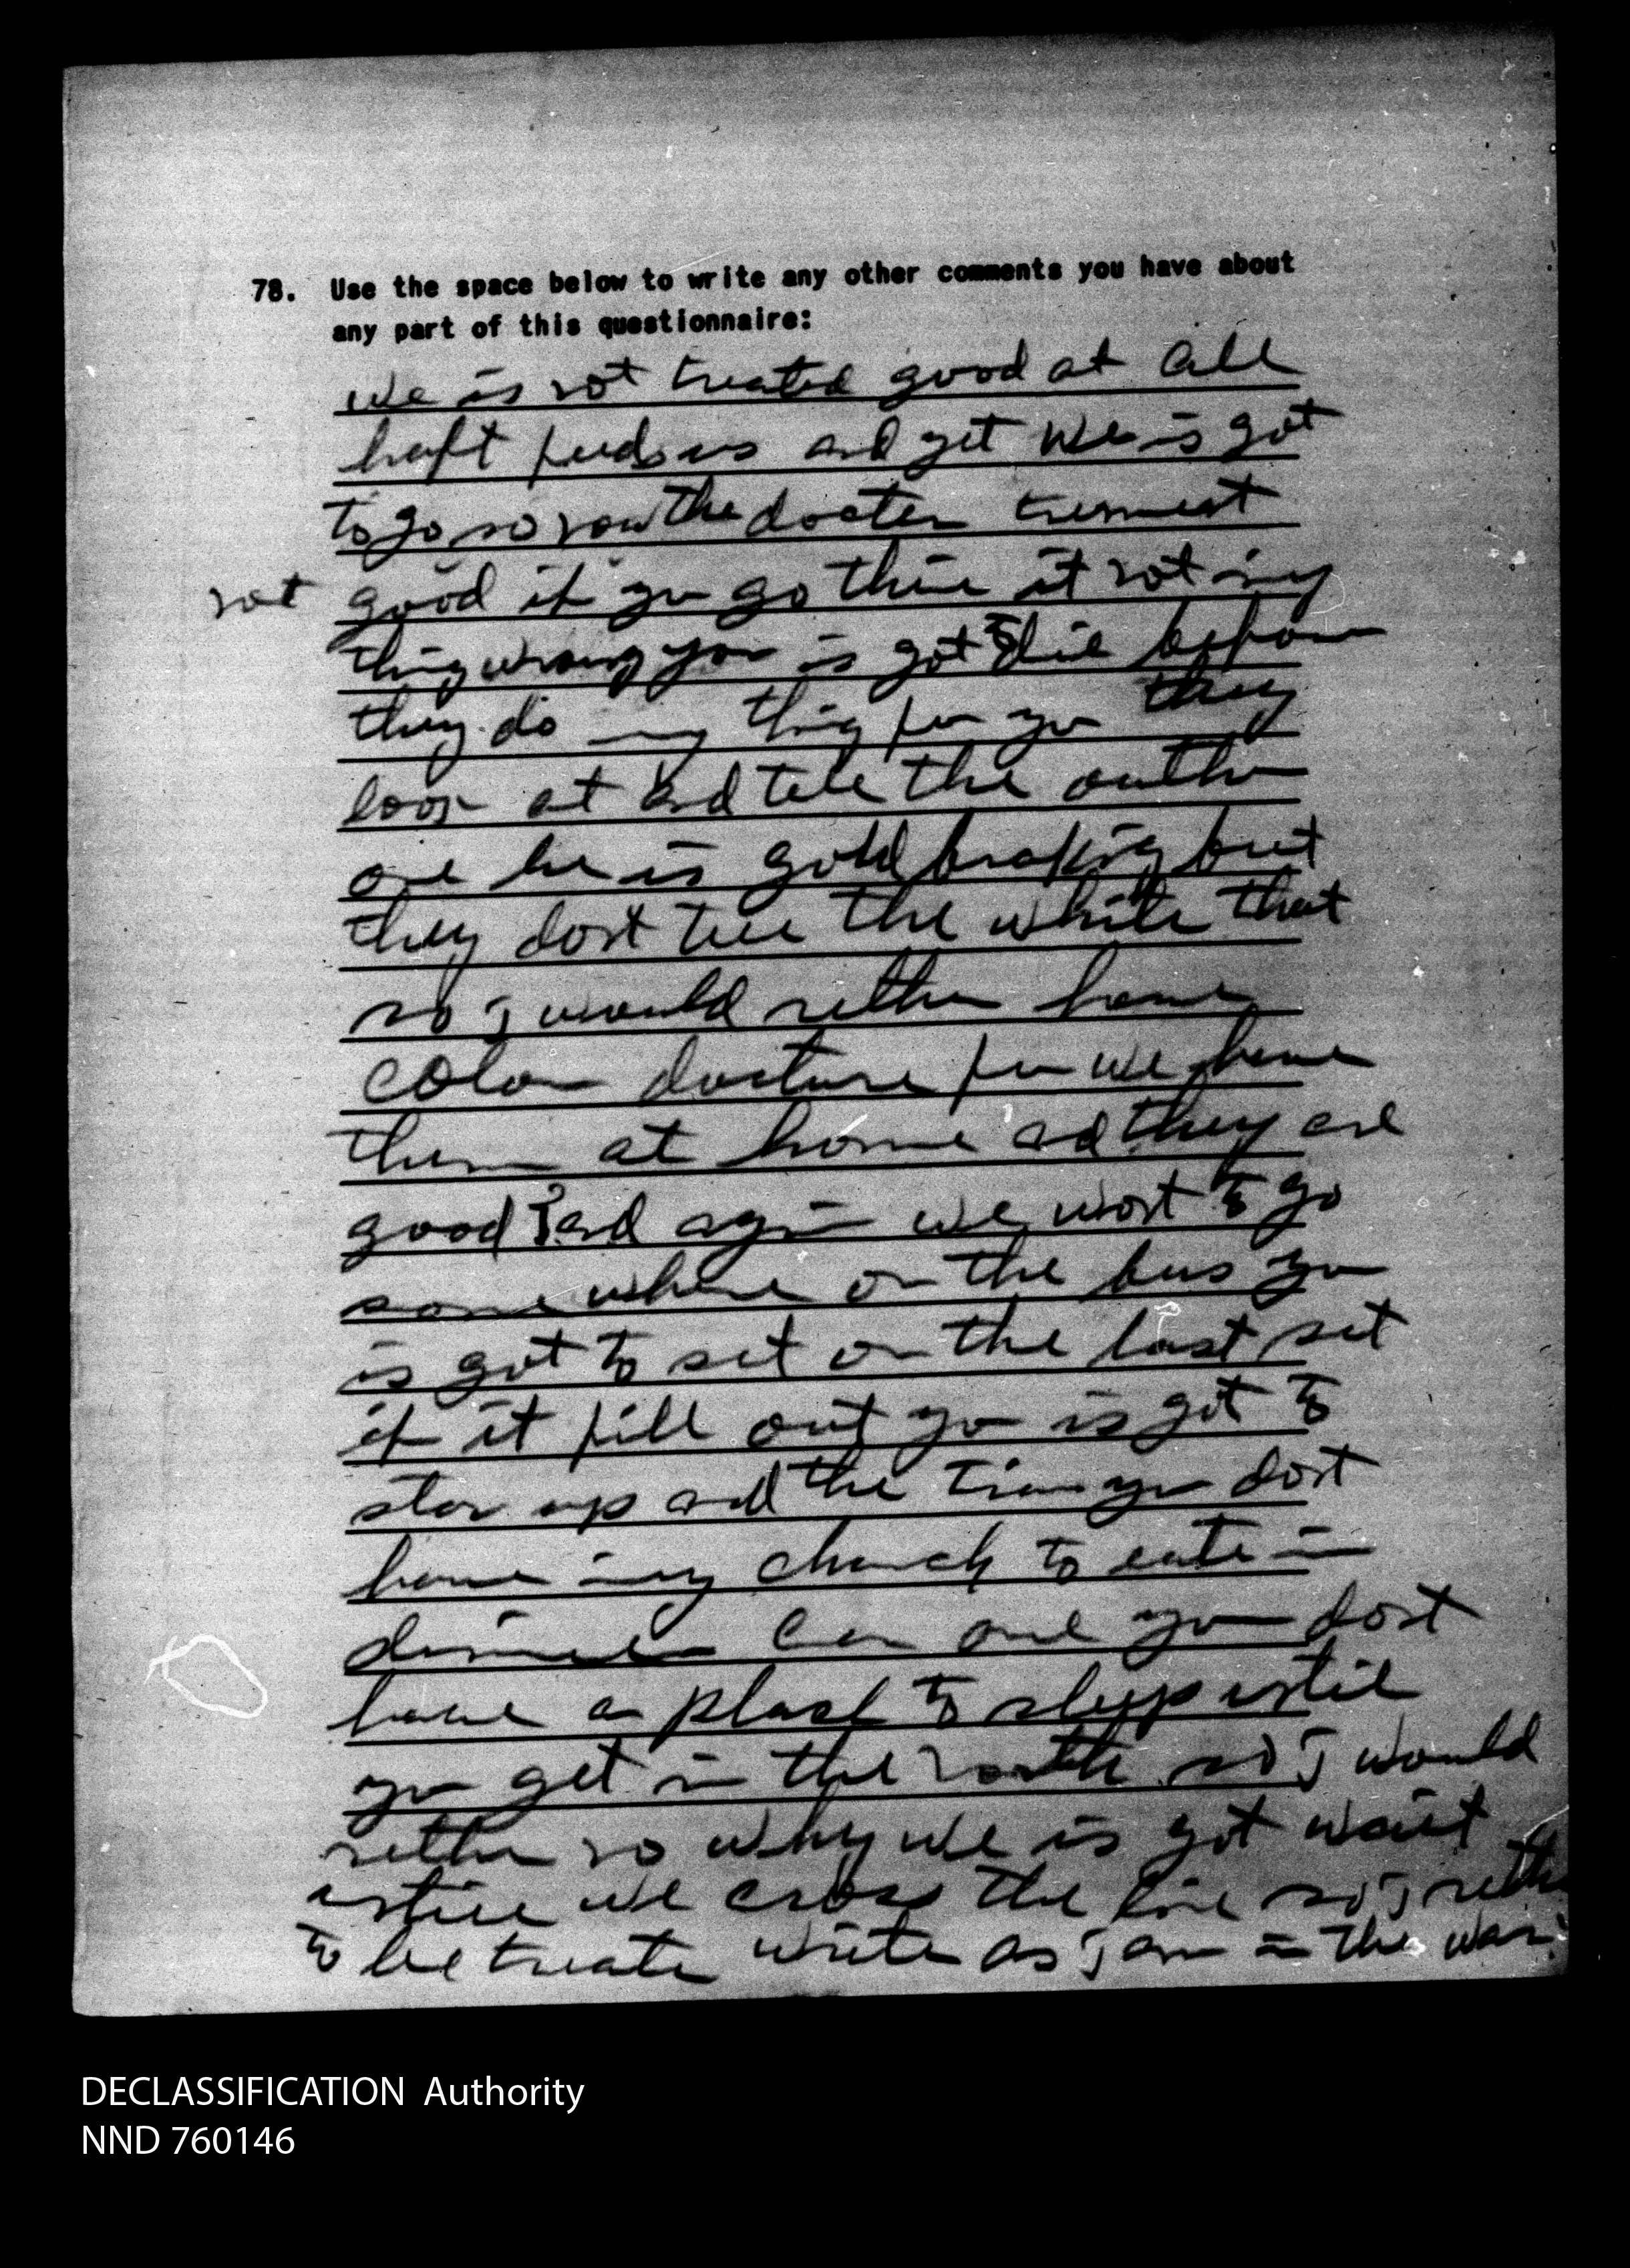 78. Use the space below to write any other comments you have about
any part of this questionnaire:
we is not treated good at all
haft feeds us and yet we is got
to go so now the docter
not good if you go thire it not iny
thing wrong you is got to die before
they do iny thing for you they
look at and tell the outher
one he is gold braking but
they dont tell the white that
so I would rether have
color docture for we have
them at home and they are
good and again we wont to go
some where on the bus you
is got to set on the last set
if it fill out you is got to
up and the train you dont
have iny chanch to eate in
car and you dont
have a plase to sleep intil
you get in the north so I would
rether no why we is got wait
intill we cross the line so I rether
to be treate write as I am in the war.
DECLASSIFICATION Authority
NND 760146